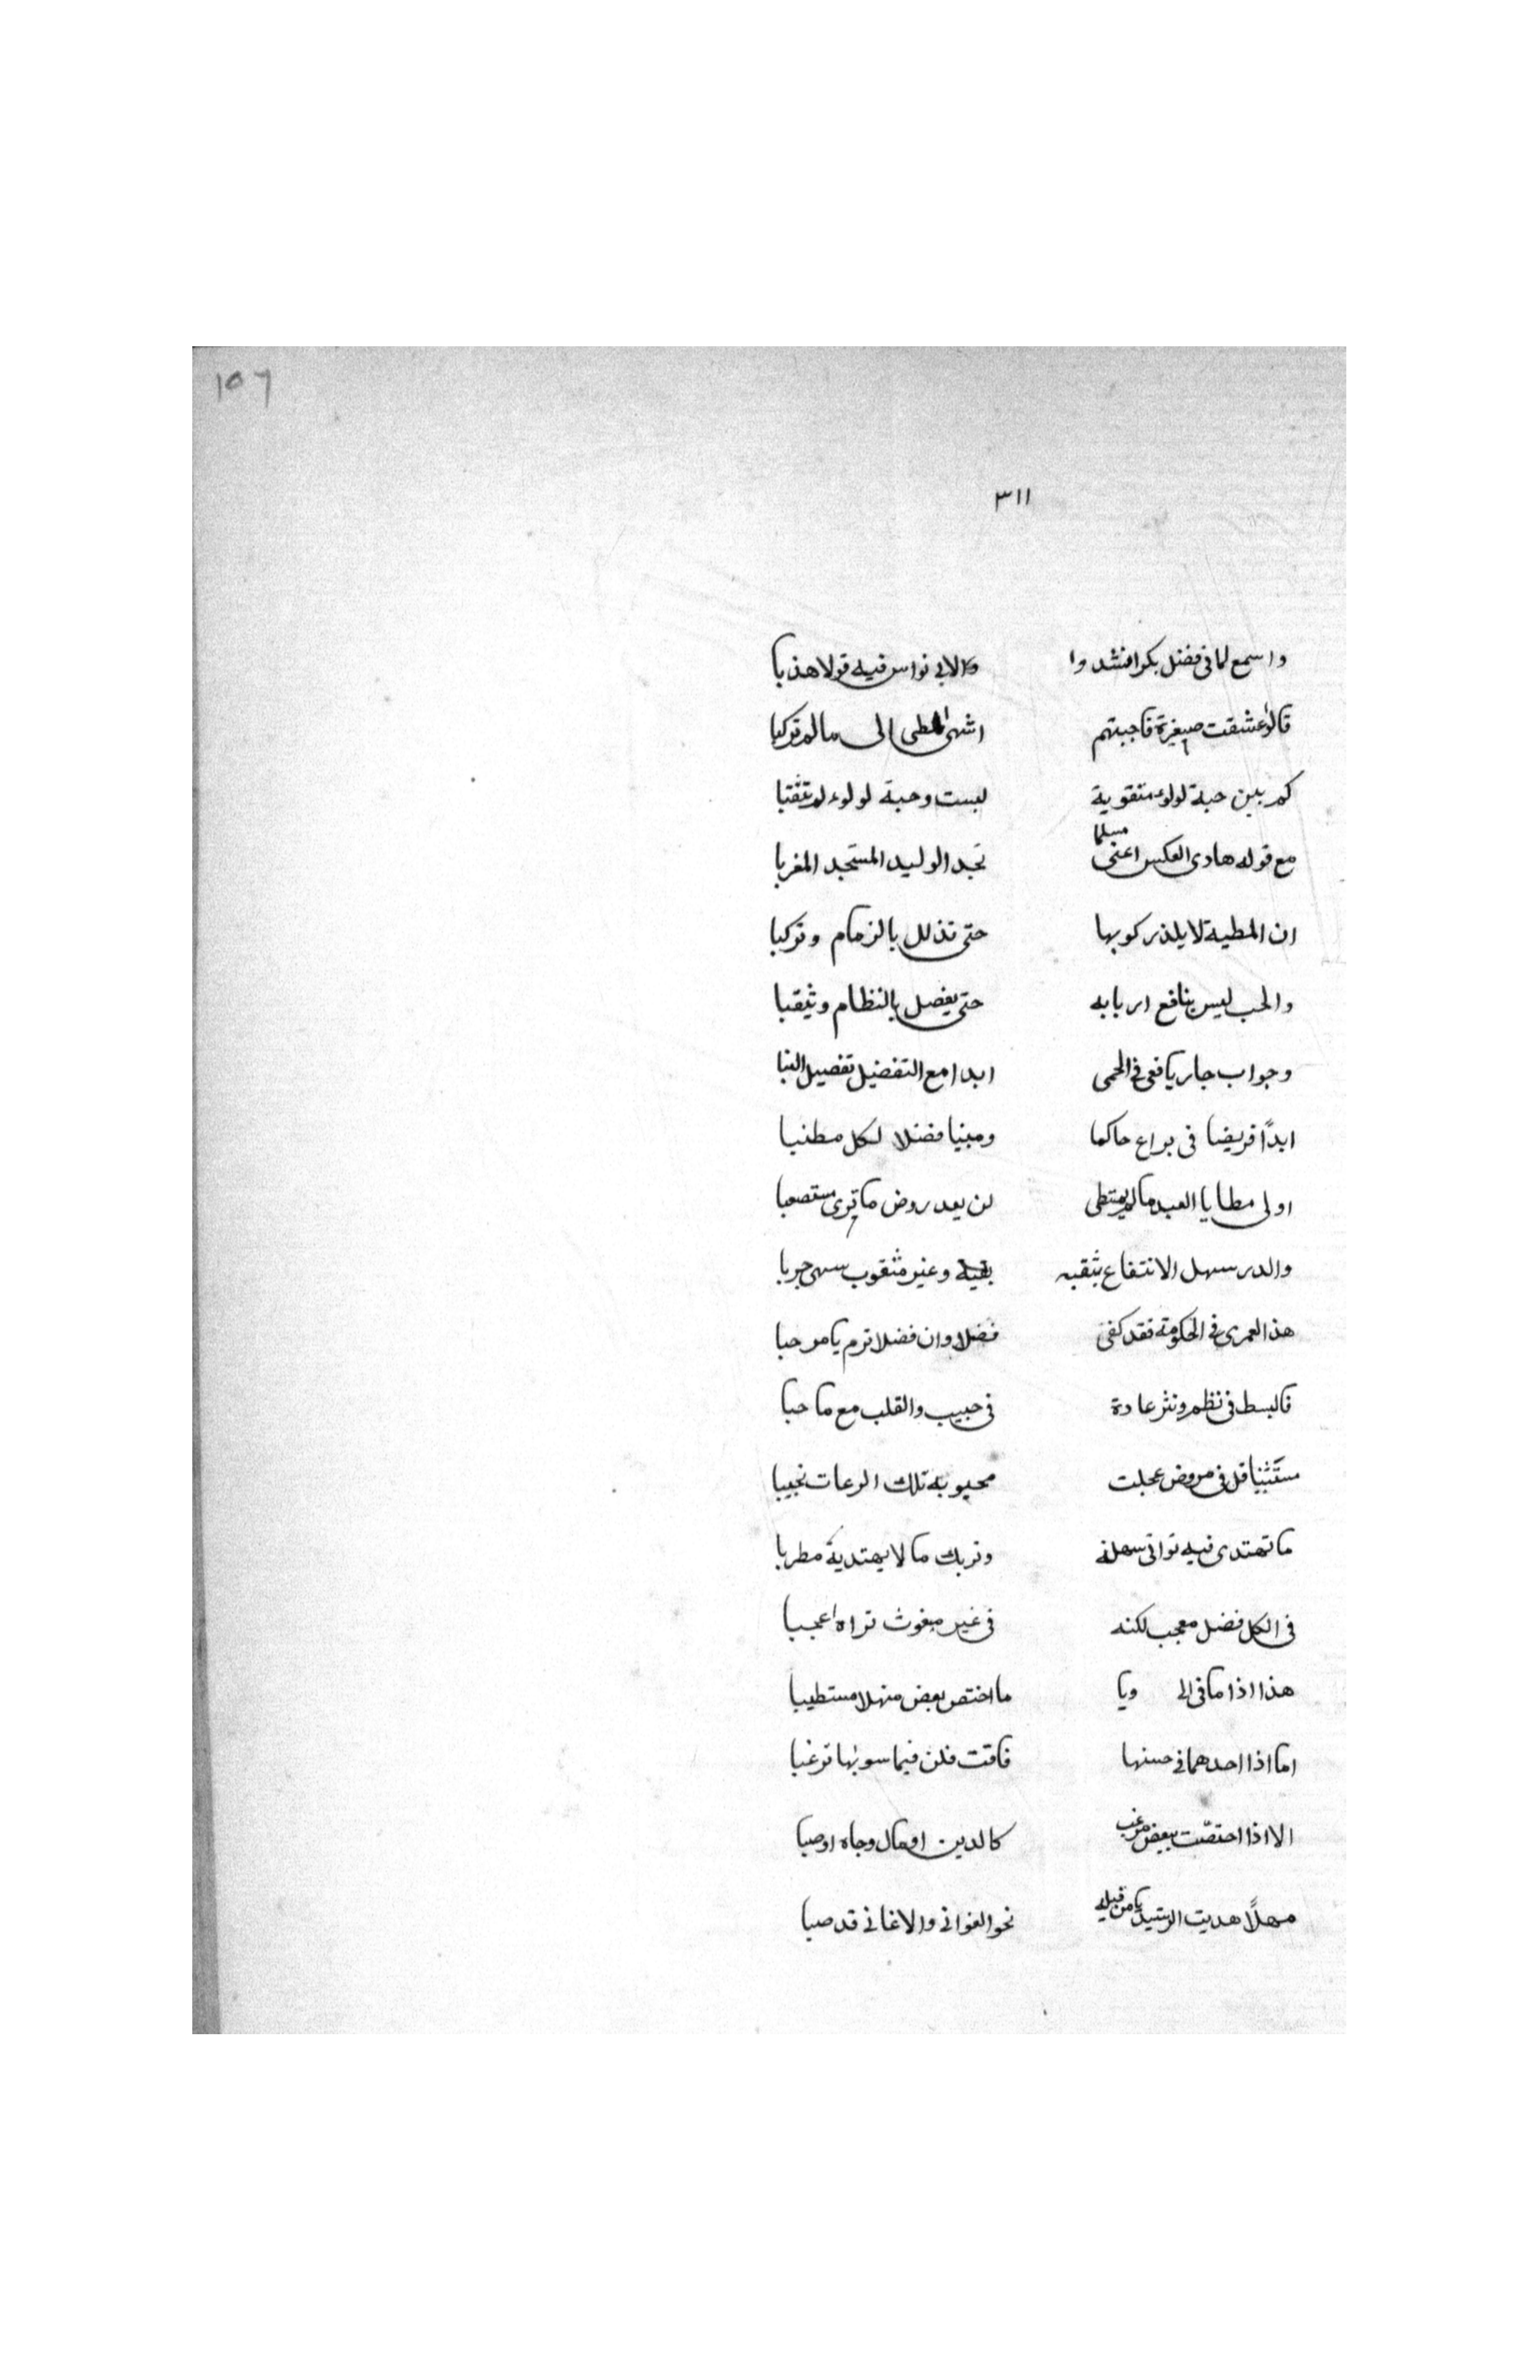 ١٥٦
٣١١
واسمع لما فى فضل بكر انشدوا والابى نواس فيه قولا هذبا
قالوا عشقت صغيرة فاجبتهم اشهى المطى الى ما لم تركبا
كم بين حبة لولوء منقوبة لبست وحبة لولوء لم تثقبا
مع قوله هادى العكس اعنى مسلما تجد الوليد المستجد المغربا
ان المطية لا يلذ ركوبها حتى تذلل بالزمام وتركبا
والحب ليس بنافع اربابه حتى يفصل بالنظام ويثقبا
وجواب جار يافعى فى الحمى ابدا مع التفضيل تفصيل النبا
ابدًا قريضا فى براع حاكما ومبنيا فضلا لكل مطنبا
اولى مطايا العبد ما لم يمتطى لن يعد روض ما ترى مستصعبا
والدر سهل الانتفاع بثقبه وغير مثقوب سهى جربا
هذا لعمرى فى الحكومة فقد كفى فضلا وان فضلا ترم يا مرحبا
فالبسط فى نظم ونثر عادة فى حبيب والقلب مع ما حبا
قل فى عجلت محبوبه تلك
ما تهتدى فيه توافى سهلة وتربك ما لا يهتديه مطربا
فى الكل فضل معجب لكنه فى غير مبغوث تراه اعجبا
هذا اذا ما فى الى ويا ما اختص بعض منهلا مستطيبا
اما اذا احدهما فى حسنها فاقت فلن فيما سوىها ترغبا
الا اذا اختصّت ببعض مرغب كالدين او مال وجاه اوصبا
مهلًا هديت الرشيد يا من قلبه نحو الغوانى والاغانى قد صبا